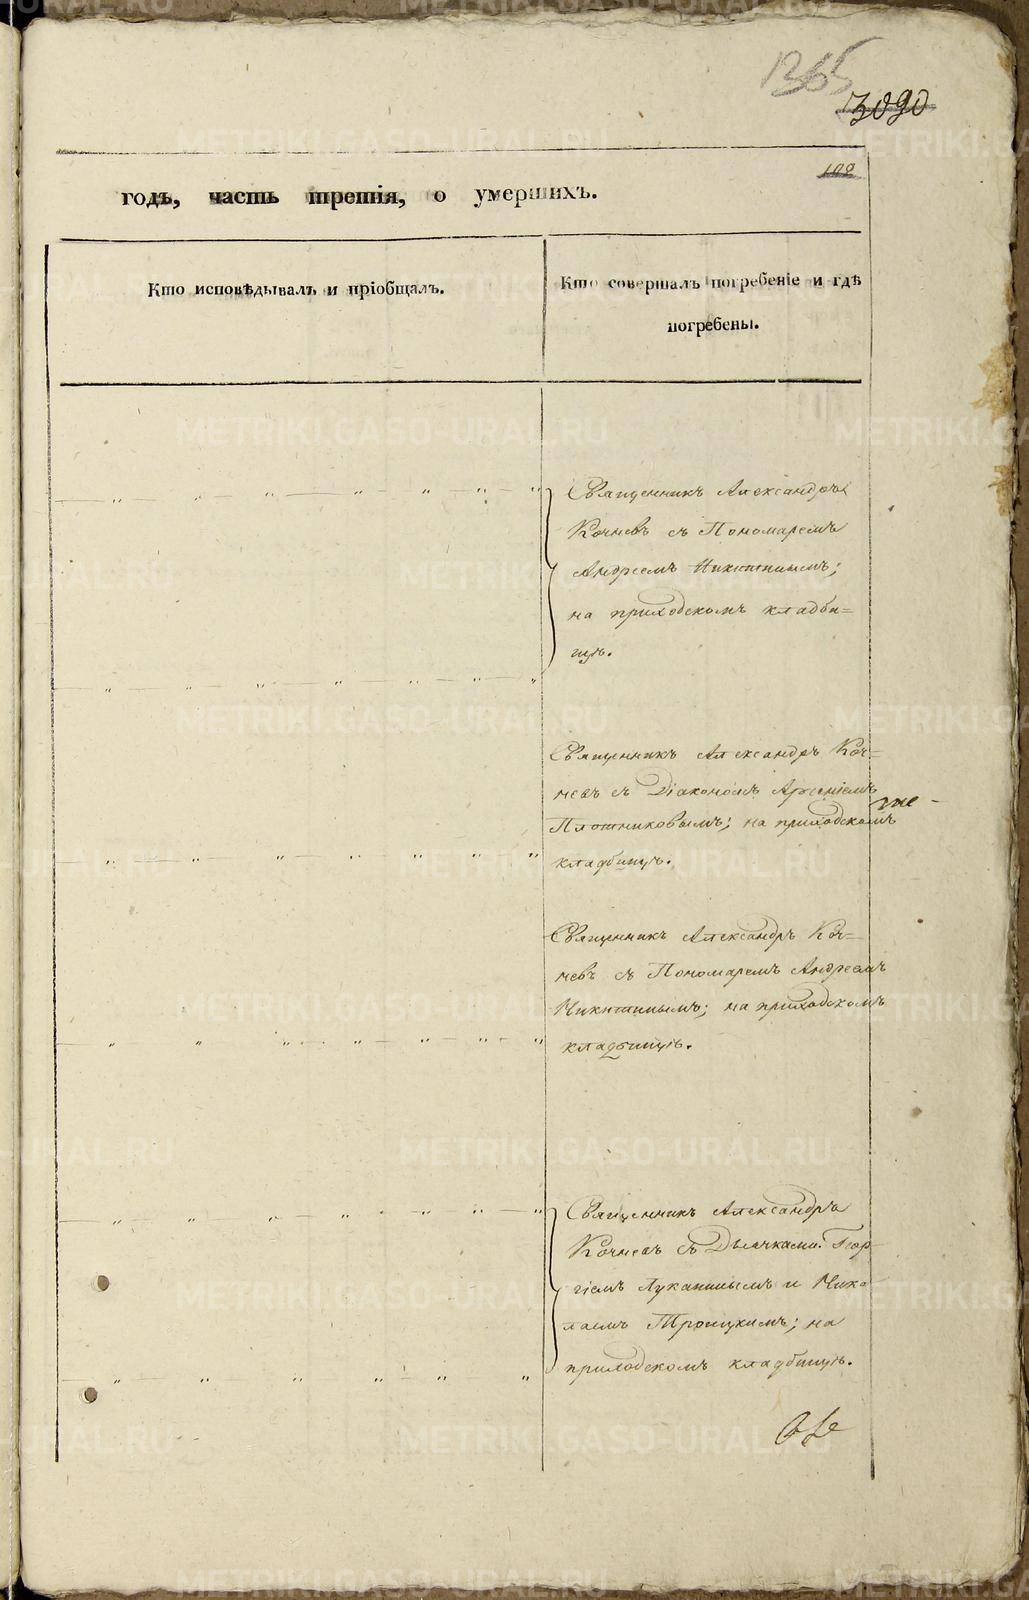 1365
3090
102
годъ, часть третія, о умершихъ.
Кто исповѣдывалъ и пріобщалъ.
Кто совершалъ погребеніе и гдѣ
погребены.
Священникъ Александръ
Кочневъ съ Пономаремъ
Андреемъ Никитинымъ;
на приходскомъ кладби=
щѣ.
Священникъ Александръ Коч=
невъ съ Діакономъ Арсеніемъ
Плотниковымъ; на приходскомъ
кладбищѣ.
Священникъ Александръ Коч=
невъ съ Пономаремъ Андреемъ
Никитинымъ; на приходскомъ
кладбищѣ.
Священникъ Александръ
Кочневъ съ Дьячками: Геор-
гіемъ Лукинымъ и Нико
лаемъ Троицкимъ; на
приходскомъ кладбищѣ.
METRIKI.GASO-URAL.RU